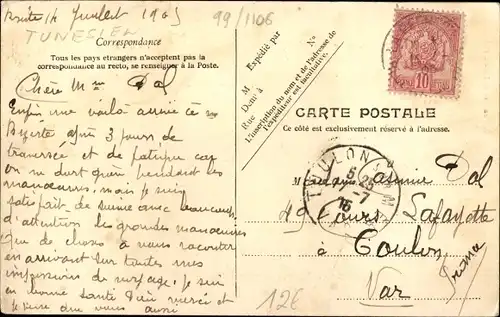 Juillet 1905
TUNESIEN
99/1106
Correspondance
Tous les pays étrangers n'acceptent pas la
correspondance au recto, se renseigner à la Poste.
Chère Mme Dol
Enfin me voilà arrivé à
Byzerte après 3 jours de
traversée et de fatigue car
on ne dort pas pendant les
manoeuvres, mais je suis
satisfait de suivre avec beaucoup
d'attention les grandes manoeuvres
que de choses à vous raconter
en arrivant sur toutes mes
impressions de voyage, je suis
en bonne santé Dieu merci et
je pense que vous aussi
Expédié par
M
Demt à
Rue
No
L'inscription du nom et de l'adresse de
l'expéditeur est facultative.
10
CARTE POSTALE
Ce côté est exclusivement réservé à l'adresse.
TOULON
5
25
7-7
Madame Dol
49 Cours Lafayette
à Toulon
Var
12€